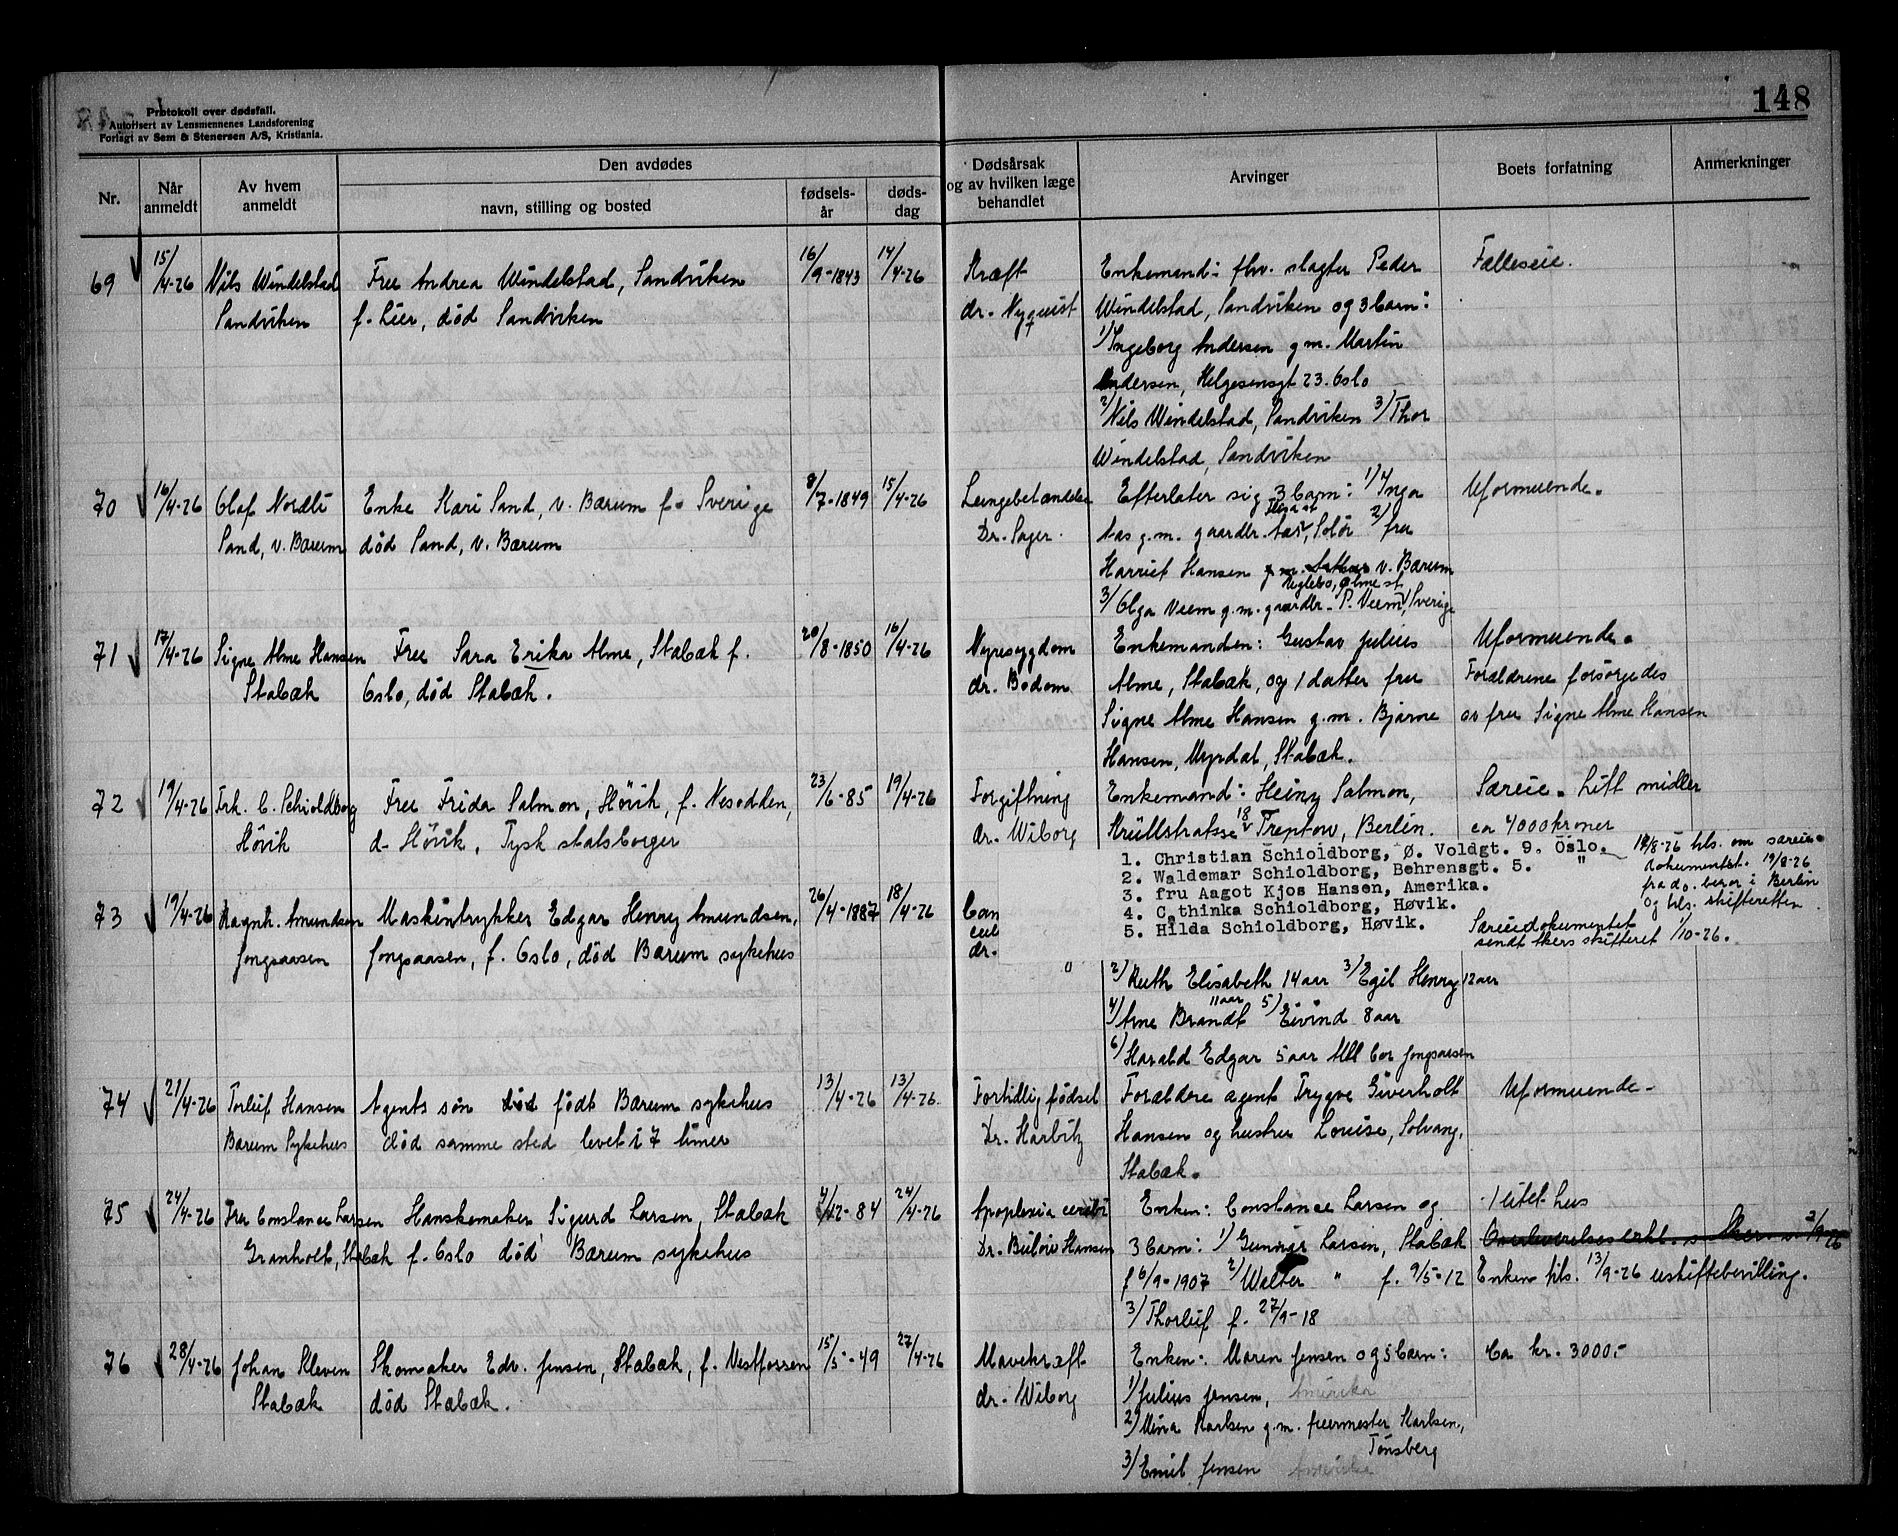 148
Protokoll over dødsfall.
Autorisert av Lensmennenes Landsforening
Forlagt av Sem & Stenersen A/S, Kristiania.
Nr.
Når anmeldt
Av hvem anmeldt
Den avdødes
navn, stilling og bosted
fødsels-år
døds-dag
Dødsårsak og av hvilken læge behandlet
Arvinger
Boets forfatning
Anmerkninger
69 15/4-26 Nils Windelstad Fru Andrea Windelstad, Sandviken 16/9-1843 14/4-26 Kræft Enkemand: fhv. slagter Peder Fælleseie.
Sandviken f. Lier, død Sandviken dr. Nyquist Windelstad, Sandviken og 3 barn:
1/ Ingeborg Andersen g.m. Martin
Andersen, Helgesensgt 23. Oslo
2/ Nils Windelstad, Sandviken 3/ Thor
Windelstad, Sandviken
70 16/4-26 Olaf Nordli Enke Kari Sand, v. Bærum f. Sverige 8/7-1849 15/4-26 Lungebetændelse Efterlater sig 3 barn: 1/ Inga Uformuende.
Sand, v. Bærum død Sand, v. Bærum Dr. Sager. Aas g.m. gaardbr. Aas, Solør 2/ fru
Harriet Hansen v. Bærum
3/ Olga Veem g.m. gaardbr. P. Veem, Sverige
71 17/4-26 Signe Alme Hansen Fru Sara Erika Alme, Stabæk f. 20/8-1850 16/4-26 Nyresygdom Enkemanden: Gustav Julius Uformuende.
Stabæk Oslo, død Stabæk. dr. Bodom Alme, Stabæk, og 1 datter fru Forældrene forsørgedes
Signe Alme Hansen g.m. Bjarne av fru Signe Alme Hansen
Hansen, Myrdal, Stabæk.
72 19/4-26 Frk. C. Schioldborg Fru Frida Salmon, Høvik, f. Nesodden, 23/6-85 19/4-26 Forgiftning Enkemand: Heinz Salmon, Særeie. Litt midler
Høvik d. Høvik, Tysk statsborger dr. Wiborg Krüllstrasse 18 Treptow, Berlin. ca 4000 kroner
1. Christian Schioldborg, Ø. Voldgt. 9. Oslo.
2. Waldemar Schioldborg, Behrensgt. 5. "
3. fru Aagot Kjos Hansen, Amerika.
4. Cathinka Schioldborg, Høvik.
5. Hilda Schioldborg, Høvik.
12/8-26 tils. om særeie-
dokumentet. 19/8-26
fra do. beror i Berlin
og tils. skifteretten
Særeiedokumentet
sendt Akers skifteret 1/10-26.
73 19/4-26 Ragnh. Amundsen Maskintrykker Edgar Henry Amundsen, 26/4-1887 18/4-26 Can
Jongsaasen Jongsaasen, f. Oslo, død Bærum sykehus
dr.
2/ Ruth Elisabeth 14 aar 3/ Egil Henry 12 aar
4/ Arne Brandt 11 aar 5/ Eivind 8 aar
6/ Harald Edgar 5 aar All bor Jongsaasen
74 21/4-26 Torleif Hansen Agents søn født Bærum sykehus 13/4-26 13/4-26. Fortidlig fødsel Forældre agent Trygve Giverholt Uformuende-
Bærum Sykehus død samme sted levet i 7 timer Dr. Harbitz Hansen og hustru Louise, Solvang,
Stabæk.
75 24/4-26 Fru Constance Larsen Hanskemaker Sigurd Larsen, Stabæk 4/12-84 24/4-26 Apoplexia cerebri Enken: Constance Larsen og 1 litet hus
Granholt, Stabæk f. Oslo død Bærum sykehus Dr. Bülow Hansen 3 barn: 1/ Gunnar Larsen, Stabæk
f 6/9-1907 2/ Walter " f. 9/5-12 Enken tils. 13/9-26 uskiftebevilling.
3/ Thorleif f. 27/9-18
76 28/4-26 Johan Kleven Skomaker Edv. Jensen, Stabæk, f. Vestfossen 15/5-49 27/4-26 Mavekræft Enken: Maren Jensen og 5 barn: Ca kr. 3000.-
Stabæk død Stabæk. dr. Wiborg 1/ Julius Jensen, Amerika
2/ Mina Karlsen g.m. fuermester Karlsen,
Tønsberg
3/ Emil Jensen Amerika